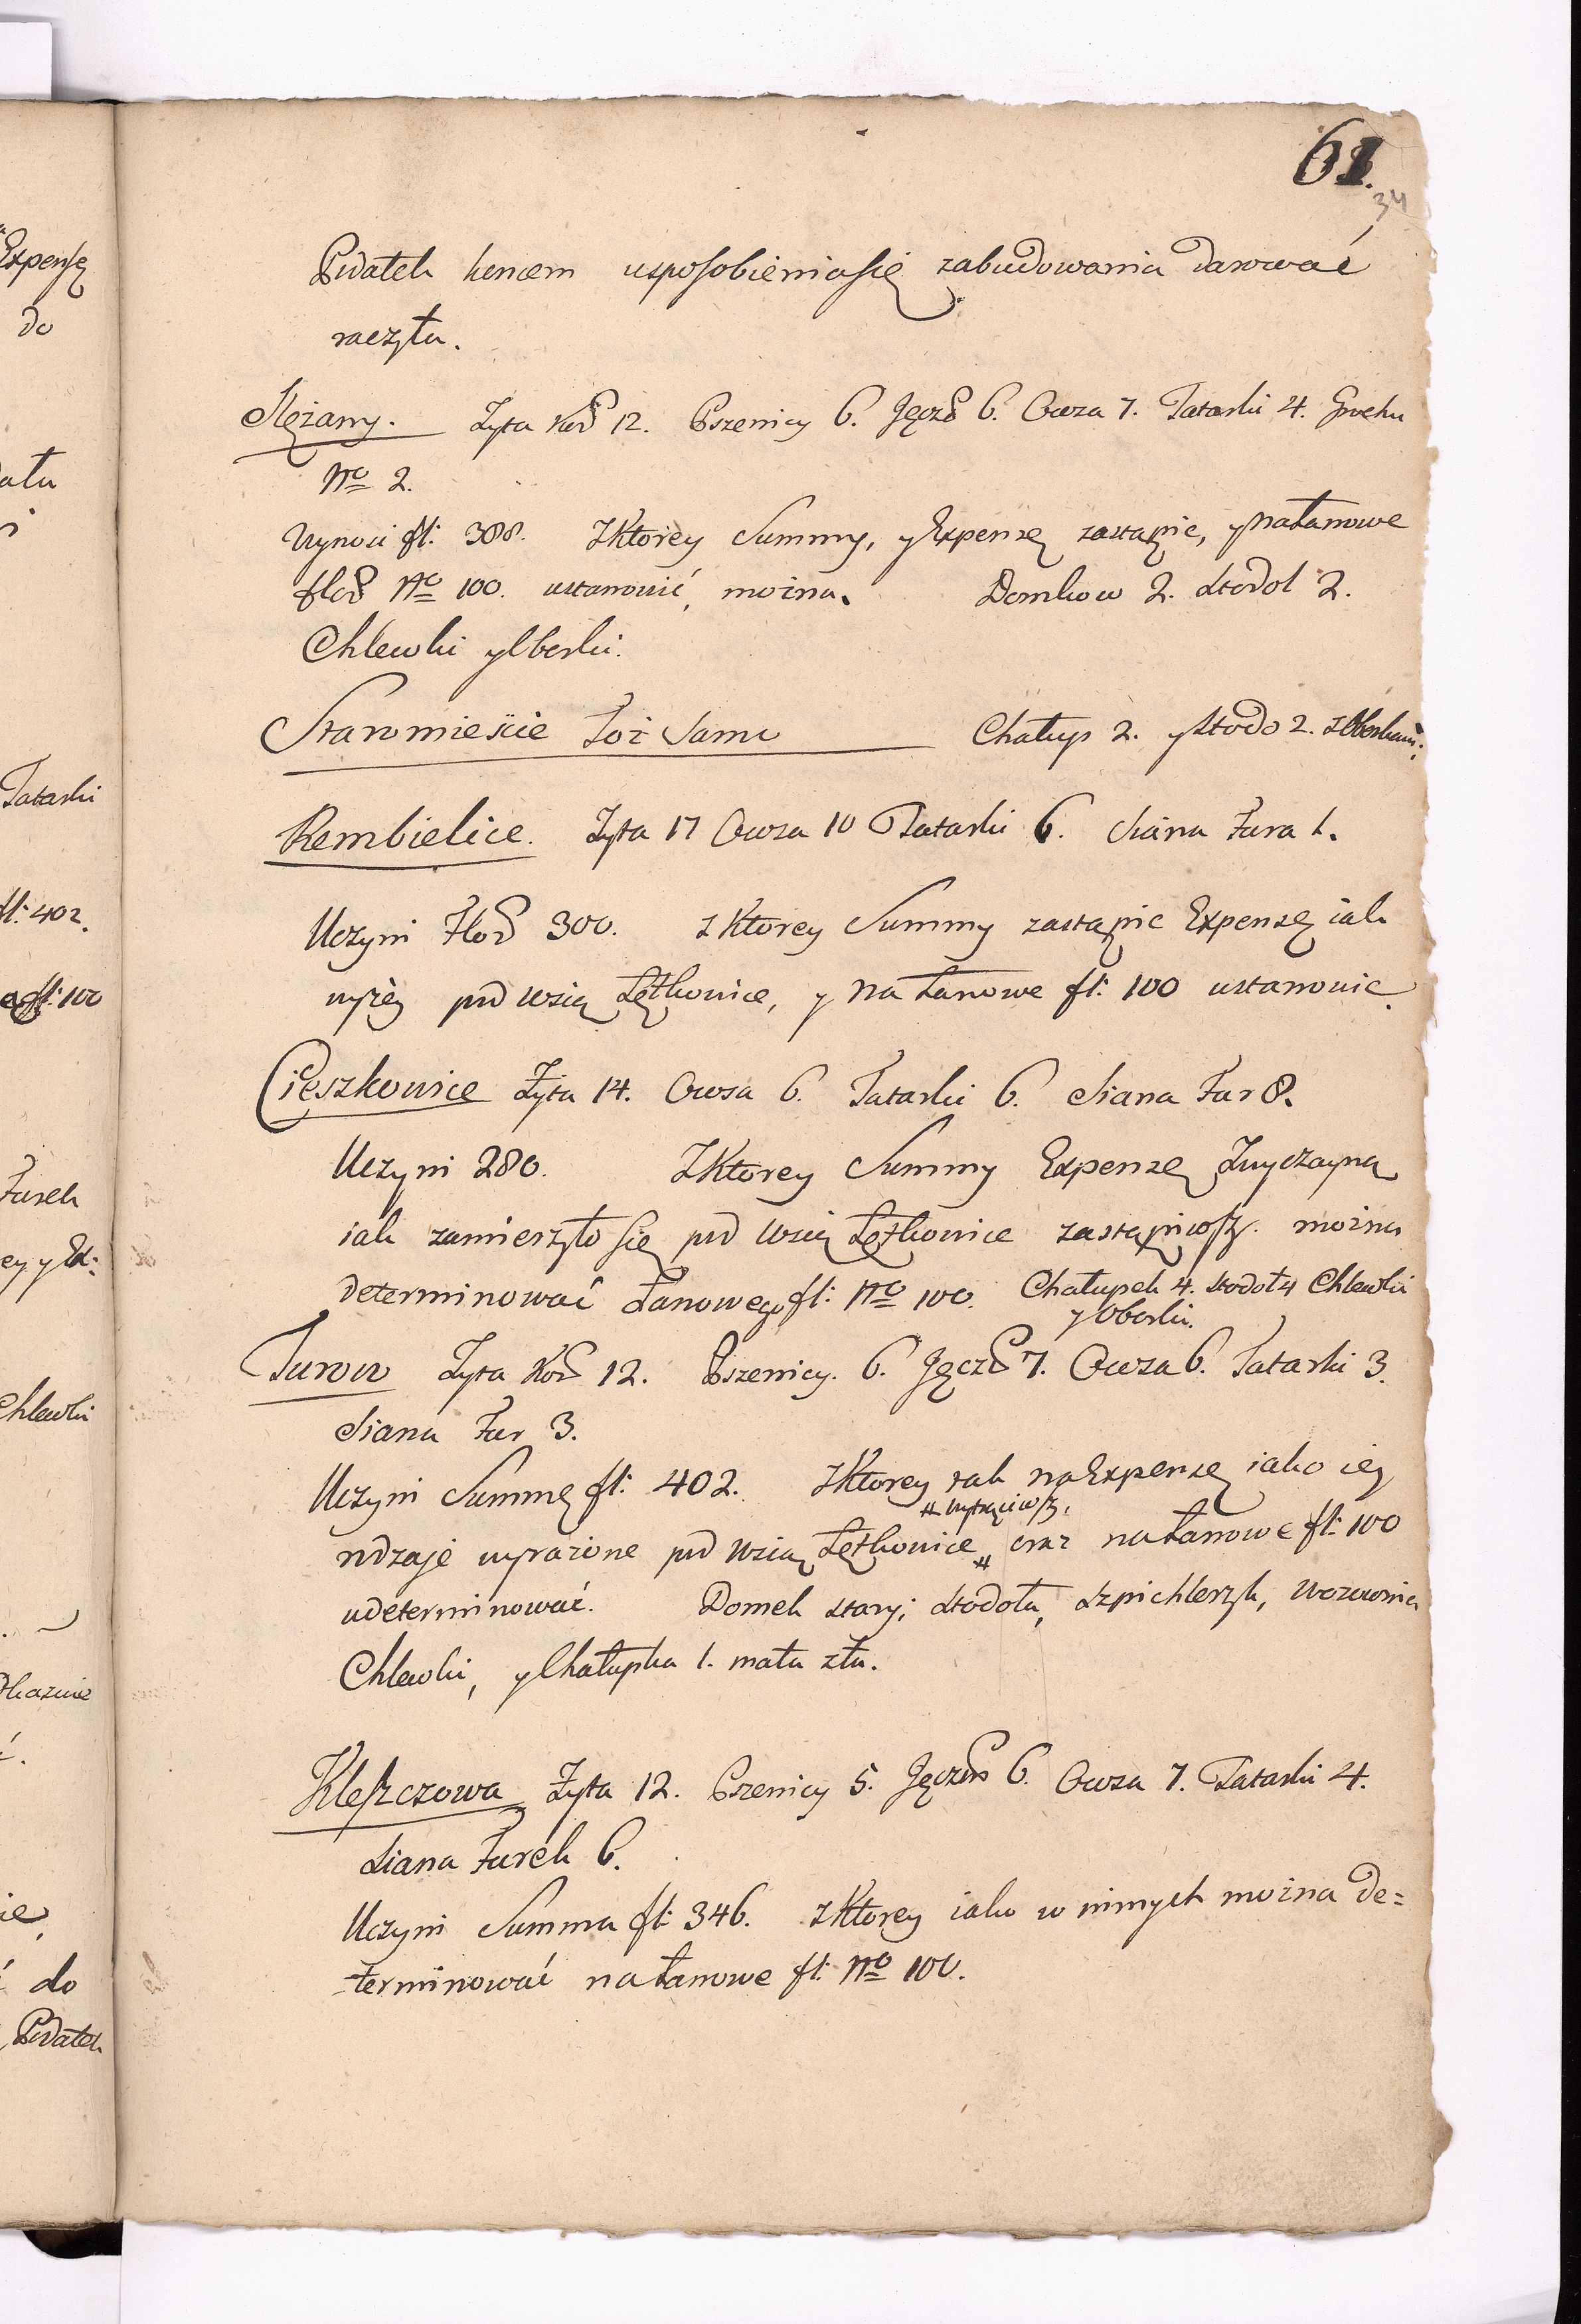 61.
34
Podatek koncem usposobienia się zabudowania darować
raczyła.
Slężany. Żyta Kor 12. Pszenicy 6. Jęczm 6. Owsa 7. Tatarki 4. Grochu
No 2.
Wynosi fl: 388. Z Ktorey Summy, y Expensę zastąpic, y na Łanowe
flor No 100. ustanowić, można. Domkow 2. Stodol 2.
Chlewki y Oborki.
Staromieście Toż Samo Chałup 2. y Stodo 2. z Oborkami.
Rembielice. Żyta 17 Owsa 10 Tatarki 6. Siana Fura 1.
Uczyni Flor 300. z Ktorey Summy zastąpic Expensę iak
wyżey pod Wsią Łętkowice, y na Łanowe fl: 100 ustanowic.
Cięszkowice Żyta 14. Owsa 6. Tatarki 6. Siana Fur 8.
Uczyni 280. Z Ktorey Summy Expensę Zwyczayną
iak zamierzyło się pod Wsią Łętkowice zastąpiwszy. można
determinować Łanowego fl: No 100. Chałupek 4. Stodoł 4 Chlewki
y Oborki.
Turow Żyta Kor 12. Pszenicy. 6. Jęczm 7. Owsa 6. Tatarki 3.
Siana Fur 3.
Uczyni Summę fl: 402. Z Ktorey tak na Expensę iako iey
# wytrąciwszy.
rodzaje wyrażone pod Wsią Łętkowice # oraz na Łanowe fl: 100
udeterminować. Domek stary; Stodoła, Szpichlerzyk, Wozownia
Chlewki, y Chałupka 1. mała zła.
Kleszczowa Żyta 12. Pszenicy 5. Jęczm 6. Owsa 7. Tatarki 4.
Siana Furek 6.
Uczyni Summa fl: 346. z Ktorey iako w innych można de=
=terminować na Łanowe fl: No 100.